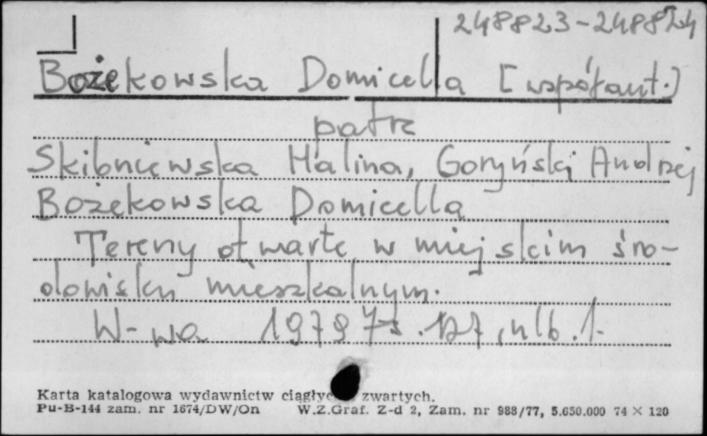 248823-248824
Bożekowska Domicella [współaut.)
patrz
Skibniewska Halina, Goryński Andrzej
Bożekowska Domicella
Tereny otwarte w miejskim śro-
dowisku mieszkalnym.
W-wa 1979 s. 127, nlb. 1.
Karta katalogowa wydawnictw zwartych.
Pu-B-144 zam. nr 1674/DW/On W.Z.Graf. Z-d 2, Zam. nr 988/77, 5.650.000 74 × 120